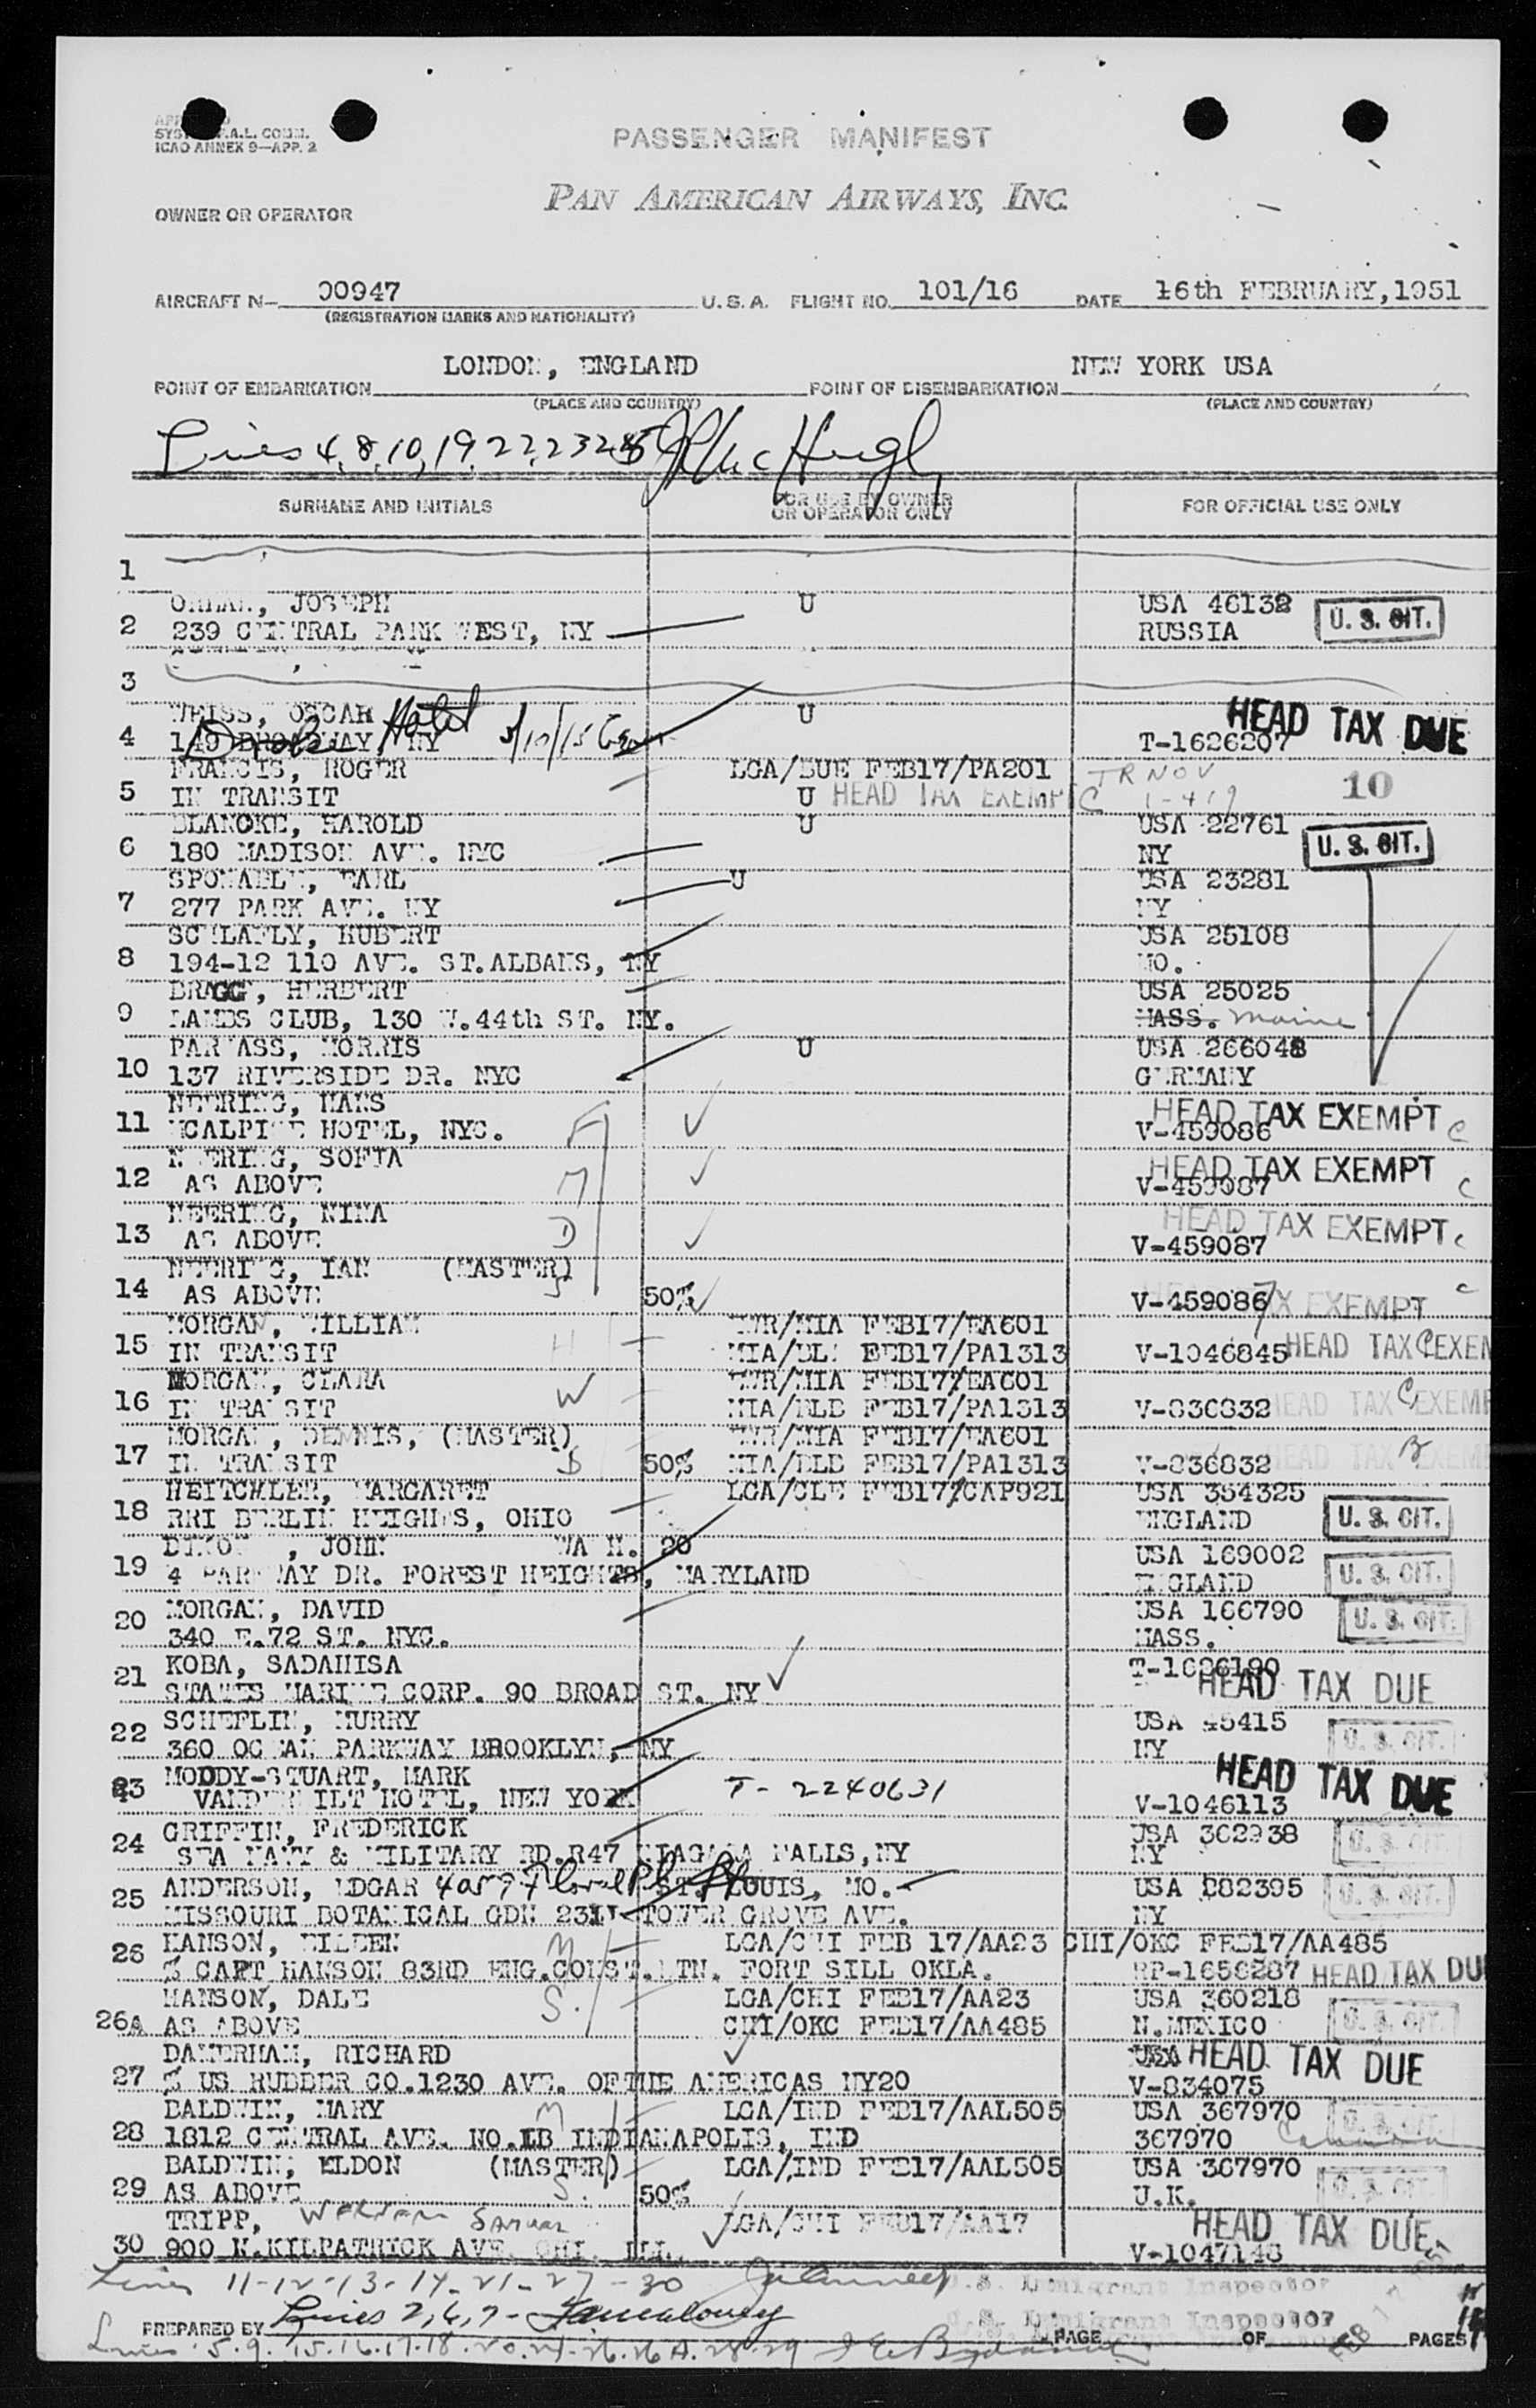 SYST F.A.L. COMM.
ICAO ANNEX 9—APP. 2
PASSENGER MANIFEST
PAN AMERICAN AIRWAYS, INC.
OWNER OR OPERATOR
AIRCRAFT N— 00947 U.S.A. FLIGHT NO. 101/16 DATE 16th FEBRUARY, 1951
(REGISTRATION MARKS AND NATIONALITY)
LONDON, ENGLAND NEW YORK USA
POINT OF EMBARKATION POINT OF DISEMBARKATION
(PLACE AND COUNTRY) (PLACE AND COUNTRY)
Lines 4, 8, 10, 19, 22, 23 McHugh
SURNAME AND INITIALS FOR USE BY OWNER OR OPERATOR ONLY FOR OFFICIAL USE ONLY
1
JOSEPH U USA 46132
2 239 CENTRAL PARK WEST, NY RUSSIA U. S. CIT.
3
WEISS, OSCAR Hotel U HEAD TAX DUE
4 149 BROADWAY, NY T-1626207
FRANCIS, ROGER LGA/BUE FEB17/PA201 TR NOV
5 IN TRANSIT U HEAD TAX EXEMPT C 10
BLANCKE, HAROLD U USA 22761
6 180 MADISON AVE. NYC NY U. S. CIT.
EARL U USA 23281
7 277 PARK AVE. NY NY
SCHLAFLY, HUBERT USA 25108
8 194-12 110 AVE. ST.ALBANS, NY MO.
BRAGG, HERBERT USA 25025
9 LAMBS CLUB, 130 W.44th ST. NY. MASS. Maine
MORRIS U USA 266048
10 137 RIVERSIDE DR. NYC GERMANY
NEERING, HANS HEAD TAX EXEMPT C
11 MCALPINE HOTEL, NYC. F V-459086
NEERING, SOFIA HEAD TAX EXEMPT
12 AS ABOVE M V-459087 C
NEERING, NINA HEAD TAX EXEMPT C
13 AS ABOVE D V-459087
NEERING, IAN (MASTER) C
14 AS ABOVE S 50% V-459086 7 TAX EXEMPT
MORGAN, WILLIAM EWR/MIA FEB17/EA601
15 IN TRANSIT H MIA/BLB FEB17/PA1313 V-1046845 HEAD TAX EXEM C
MORGAN, CLARA EWR/MIA FEB17/EA601
16 IN TRANSIT W MIA/BLB FEB17/PA1313 V-836832 HEAD TAX EXEMP C
MORGAN, DENNIS, (MASTER) EWR/MIA FEB17/EA601
17 IN TRANSIT S 50% MIA/BLB FEB17/PA1313 V-836832 HEAD TAX EXEM
MARGARET LGA/CLE FEB17/CAP921 USA 354325
18 RR1 BERLIN HEIGHTS, OHIO ENGLAND U. S. CIT.
JOHN USA 169002
19 4 PARKWAY DR. FOREST HEIGHTS, MARYLAND ENGLAND U. S. CIT.
MORGAN, DAVID USA 166790
20 340 E.72 ST. NYC. MASS. U. S. CIT.
KOBA, SADAHISA T-1626190
21 STATES MARINE CORP. 90 BROAD ST. NY HEAD TAX DUE
SCHEFLIN, MURRY USA 45415
22 360 OCEAN PARKWAY BROOKLYN, NY NY U. S. CIT.
MOODY-STUART, MARK HEAD TAX DUE
23 VANDERBILT HOTEL, NEW YORK T-2240631 V-1046113
GRIFFIN, FREDERICK USA 362938
24 MILITARY RD.R47 NIAGARA FALLS,NY NY U. S. CIT.
ANDERSON, EDGAR ST. LOUIS, MO. USA
25 MISSOURI BOTANICAL GDN TOWER GROVE AVE. NY U. S. CIT.
HANSON, EILEEN M LGA/CHI FEB 17/AA23 CHI/OKC FEB17/AA485
26 % CAPT HANSON 83RD ENG.CONST.BTN. FORT SILL OKLA. RP-1656287 HEAD TAX DU
HANSON, DALE S. LGA/CHI FEB17/AA23 USA 360218
26A AS ABOVE CHI/OKC FEB17/AA485 N.MEXICO U. S. CIT.
RICHARD USA HEAD TAX DUE
27 % US RUBBER CO.1230 AVE. OF THE AMERICAS NY20 V-834075
BALDWIN, MARY M LGA/IND FEB17/AAL505 USA 367970
28 1812 CENTRAL AVE. NO.1B INDIANAPOLIS, IND 367970 Canada
BALDWIN, ELDON (MASTER) LGA/IND FEB17/AAL505 USA 367970
29 AS ABOVE S. 50% U.K. U. S. CIT.
TRIPP, LGA/CHI FEB17/AA17 HEAD TAX DUE
30 900 N.KILPATRICK AVE. CHI. ILL. V-1047148
Lines 11-12-13-14-21-27-30 U. S. Immigrant Inspector
PREPARED BY Lines 2, 6, 7 - U. S. Immigrant Inspector
PAGE OF PAGES
Lines 5. 9. 15. 16. 17. 18. 20. 24. 26. 26A. 28. 29